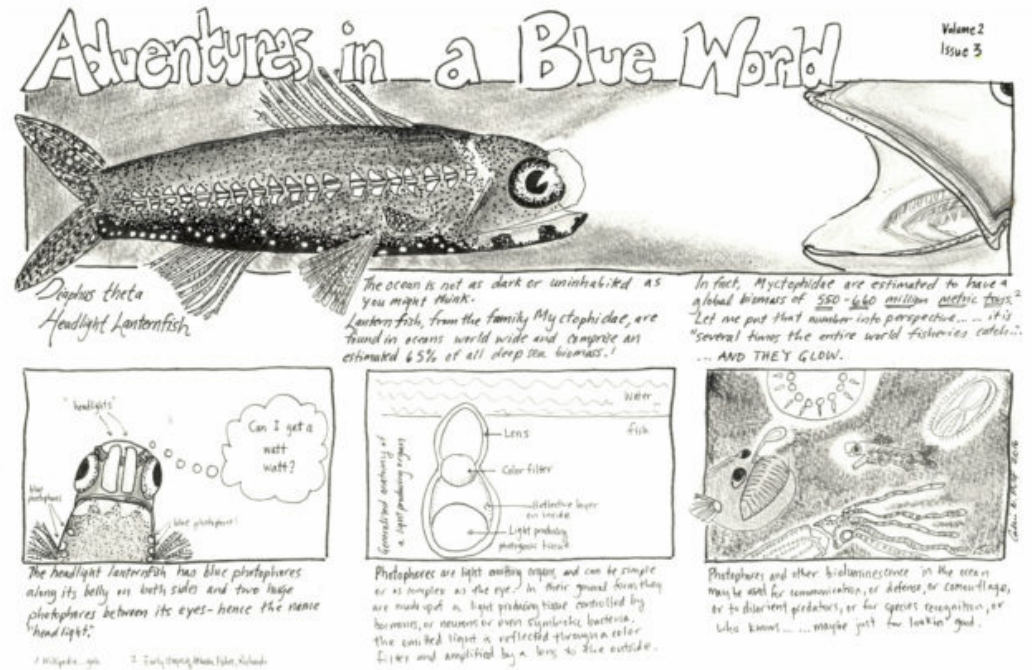 Adventures in a Blue World
Volume 2
Issue 3
Diaphus theta
Headlight Lanternfish
The ocean is not as dark or uninhabited as
you might think.
Lanternfish, from the family Myctophidae, are
found in oceans world wide and comprise an
estimated 65% of all deep sea biomass.1
In fact, Myctophidae are estimated to have a
global biomass of 550-660 million metric tons.2
Let me put that number into perspective..... it is
"several times the entire world fisheries catch."
... AND THEY GLOW.
"headlights"
Can I get a
watt
watt?
blue
photophores
blue photophores
The headlight lanternfish has blue photophores
along its belly on both sides and two huge
photophores between its eyes - hence the name
"headlight."
Water
fish
Generalized anatomy of
a light producing organ
Lens
Color filter
Reflective layer
on inside
Light producing
photogenic tissue
Photophores are light emitting organs, and can be simple
or as complex as the eye. In their general form, they
are made up of a light producing tissue controlled by
hormones, or neurons or even symbiotic bacteria.
The emitted light is reflected through a color
filter and amplified by a lens to the outside.
Photophores and other bioluminescence in the ocean
may be used for communication, or defense, or camouflage,
or to disorient predators, or for species recognition, or
who knows...... maybe just for lookin' good.
1 Wikipedia
2
2016